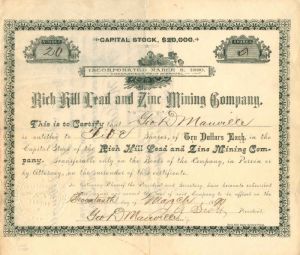 CAPITAL STOCK, $20,000.
20
INCORPORATED MARCH 2, 1890.
Rich Hill Lead and Zinc Mining Company.
This is to Certify that Geo D Manville
is entitled to Five Shares, of Ten Dollars Each, in the
Capital Stock of the Rich Hill Lead and Zinc Mining Com-
pany. Transferable only on the Books of the Company, in Person or
by Attorney, on the surrender of this certificate.
In Witness Whereof the President and Secretary have hereunto subscribed
March
Geo D Manville
President.